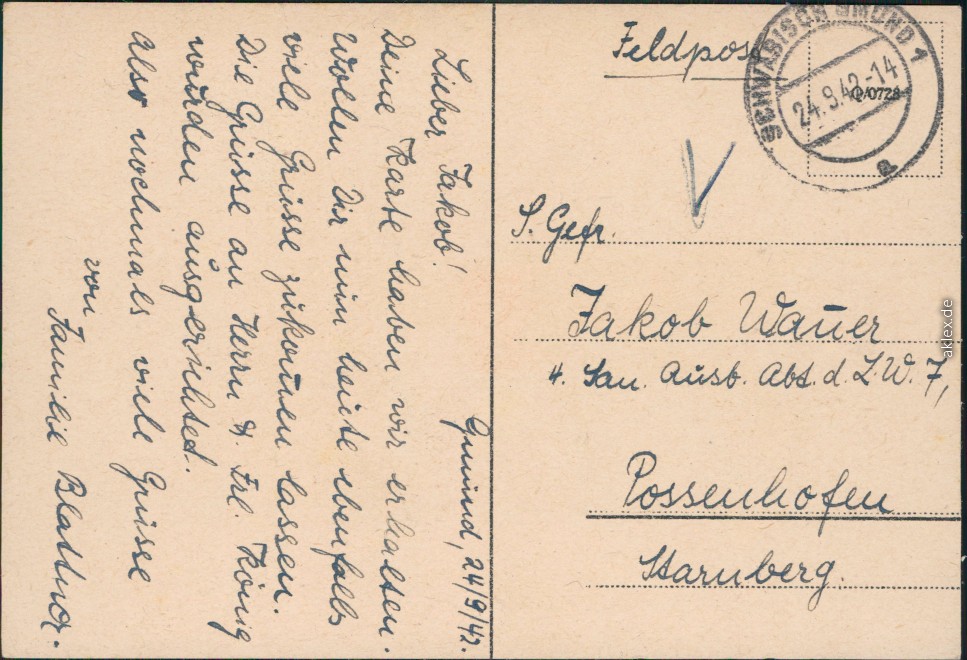 Gmünd, 24/9/42.
Lieber Jakob!
Deine Karte haben wir erhalten.
Wollen Dir nun heute ebenfalls
viele Grüsse zukom̄en lassen.
Die Grüsse an Herrn & Frl. König
wurden ausgerichted.
Also nochmals viele Grüsse
von
Familie Blattner.
Feldpost
SCHWÄBISCH GMÜND 1
24.9.42.-14
a
C/0728
S. Gefr.
Jakob Wauer
4. San. Ausb. Abt. d. L.W. 7,
Possenhofen
Starnberg.
aklex.de